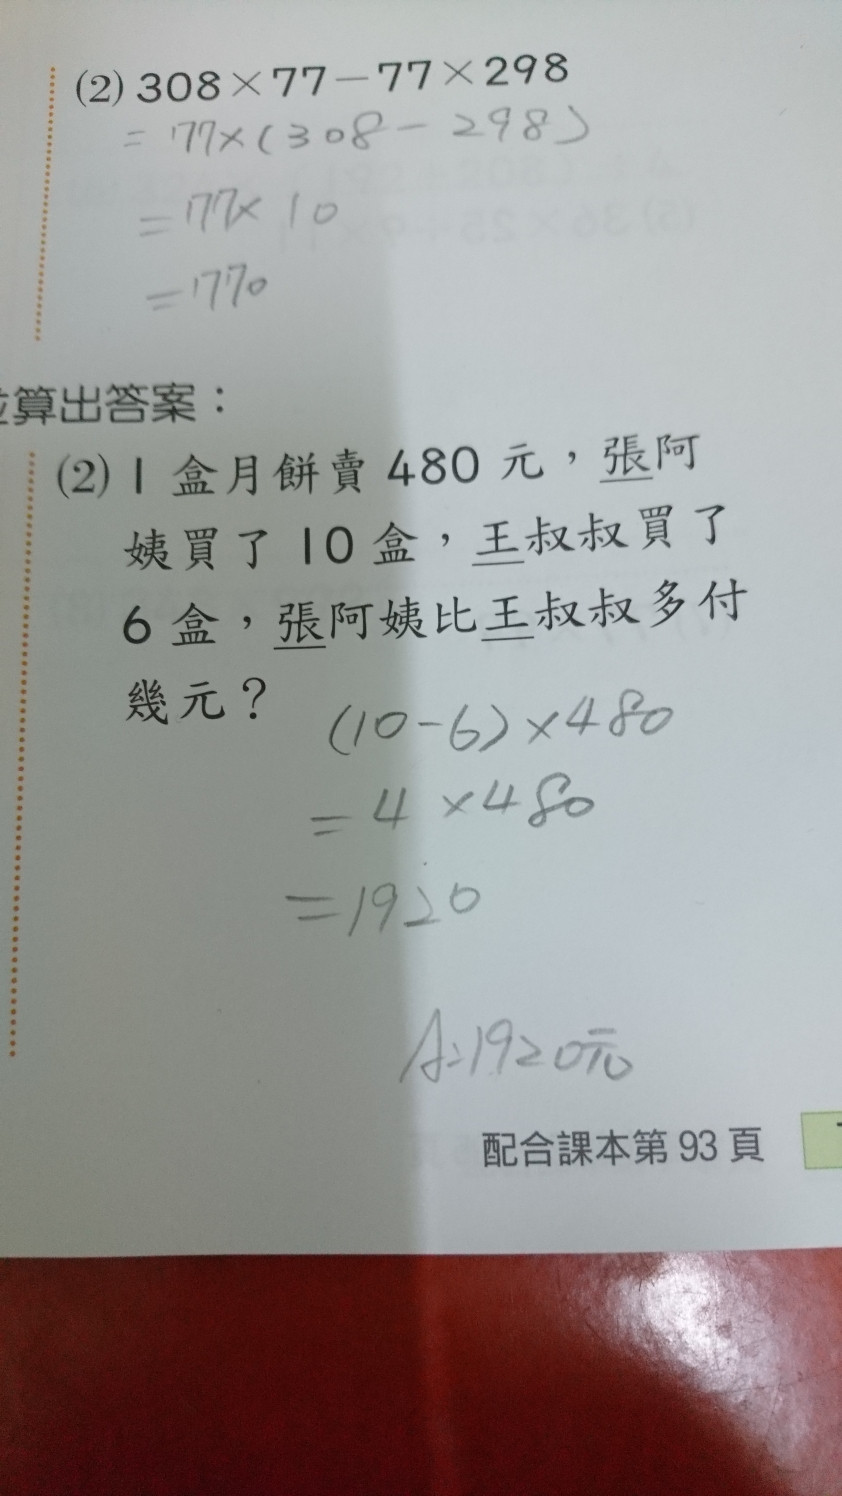 (2) 308×77－77×298
= 77×(308－298)
= 77×10
= 770
並算出答案：
(2) 1 盒月餅賣 480 元，張阿
姨買了 10 盒，王叔叔買了
6 盒，張阿姨比王叔叔多付
幾元？
(10－6)×480
= 4×480
= 1920
A:1920元
配合課本第 93 頁